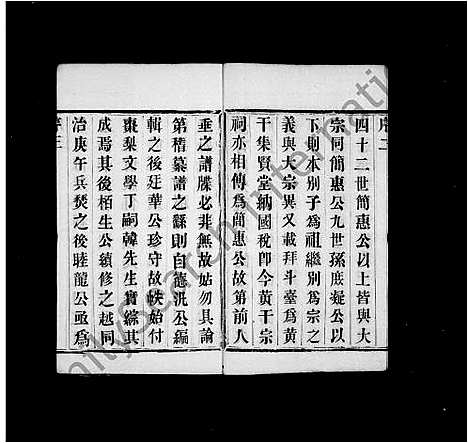 序二
四十二世簡惠公以上皆與大
宗同簡惠公九世孫底凝公以
下則本別子為祖繼別為宗之
義與大宗異又載拜斗臺為黃
干集賢堂納國稅卽今黃干宗
祠亦相傳為簡惠公故第前人
垂之譜牒必非無故姑勿具論
第稽纂譜之繇則自德汎公編
輯之後迂華公珍守故帙始付
棗梨文學丁嗣韓先生實綜其
成焉其後栢生公續修之越同
治庚午兵燹之後睦龍公亟為
序三